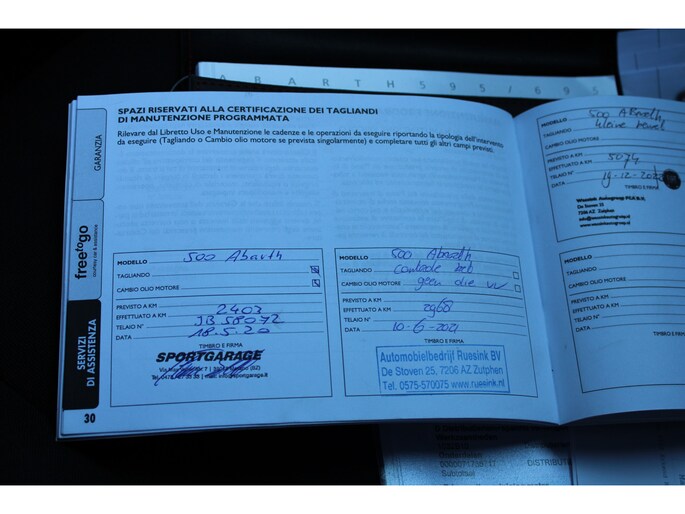 ABARTH 595/695
SPAZI RISERVATI ALLA CERTIFICAZIONE DEI TAGLIANDI
DI MANUTENZIONE PROGRAMMATA
Rilevare dal Libretto Uso e Manutenzione le cadenze e le operazioni da eseguire riportando la tipologia dell'intervento
da eseguire (Tagliando o Cambio olio motore se prevista singolarmente) e completare tutti gli altri campi previsti.
GARANZIA
freetogo
SERVIZI
DI ASSISTENZA
MODELLO 500 Abarth
TAGLIANDO
CAMBIO OLIO MOTORE
PREVISTO A KM
EFFETTUATO A KM 2403
TELAIO N° JB508072
DATA 18.5.20
TIMBRO E FIRMA
SPORTGARAGE
MODELLO 500 Abarth
TAGLIANDO
CAMBIO OLIO MOTORE geen olie
PREVISTO A KM
EFFETTUATO A KM 2968
TELAIO N°
DATA 10-6-2021
TIMBRO E FIRMA
Automobielbedrijf Ruesink BV
De Stoven 25, 7206 AZ Zutphen
Tel. 0575-570075 www.ruesink.nl
30
MODELLO 500 Abarth
kleine beurt
TAGLIANDO
CAMBIO OLIO MOTORE
PREVISTO A KM
EFFETTUATO A KM 5074
TELAIO N°
DATA 19-12-202
TIMBRO E FIRMA
De Stoven 25
7206 AZ Zutphen
MODELLO
TAGLIANDO
CAMBIO OLIO MOTORE
PREVISTO A KM
EFFETTUATO A KM
TELAIO N°
DATA
DISTRIBUTIE
Subtotaal